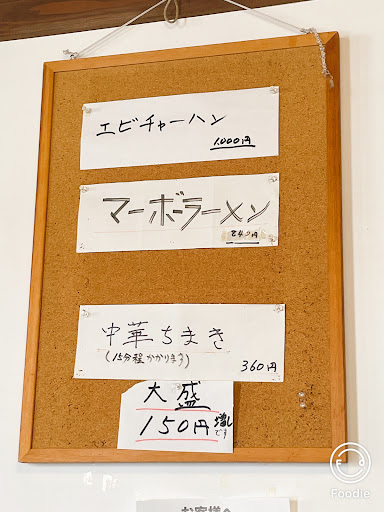 エビチャーハン
1,000円
マーボーラーメン
840円
中華ちまき
(15分程かかります)
360円
大盛
150円増しです
お客様へ
Foodie